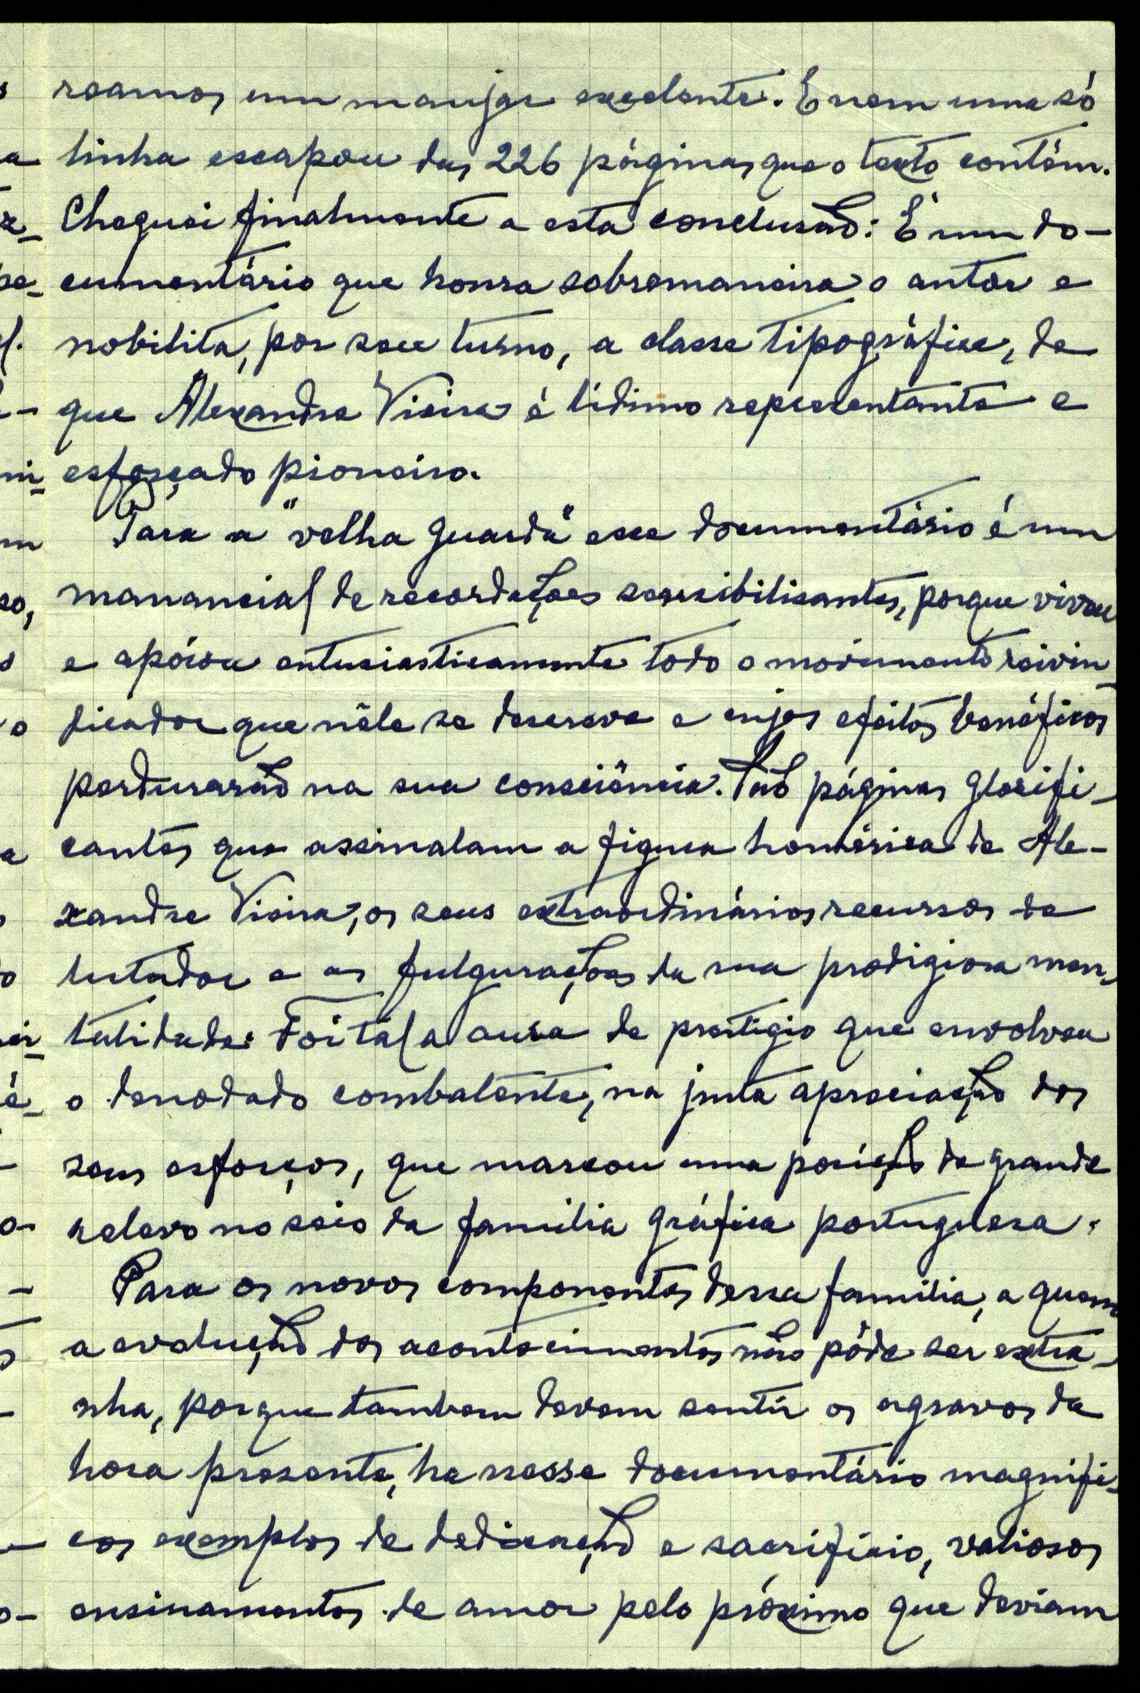 reamos um manjar excelente. E nem uma só
linha escapou das 226 páginas que o texto contém.
Cheguei finalmente a esta conclusão: É um do-
cumentário que honra sobremaneira o autor e
nobilita, por seu turno, a classe tipográfica, de
que Alexandre Vieira é lídimo representante e
esforçado pioneiro.
Para a "velha guarda" esse documentário é um
manancial de recordações sensibilisantes, porque viveu
e apóiou entusiasticamente todo o movimento reivin
dicador que nêle se descreve e cujos efeitos benéficos
perdurarão na sua consciência. São páginas glorifi-
cantes que assinalam a figura homérica de Ale-
xandre Vieira, os seus extraordinários recursos de
lutador e as fulgurações da sua prodigiosa men-
talidade. Foi tal a aura de prestígio que envolveu
o denodado combatente, na justa apreciação dos
seus esforços, que marcou uma posição de grande
relevo no seio da familia gráfica portuguesa.
Para os novos componentes dessa familia, a quem
a evolução dos acontecimentos não póde ser extra-
nha, porque tambem devem sentir os agravos da
hora presente, ha nesse documentário magnifi-
cos exemplos de dedicação e sacrifício, valiosos
ensinamentos de amor pelo próximo que deviam